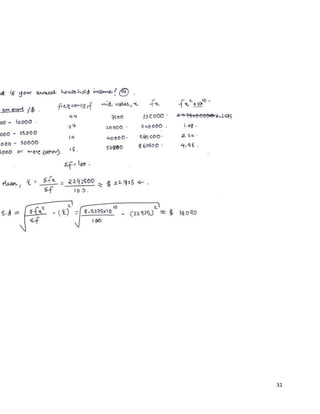 is your annual household income? (14)
amount /$ frequency, f mid value, x fx fx² x10¹⁰
00 - 10000 . 44 7500 330000 .
000 - 25000 27 20000 540000 . 1.08 .
000 - 50000 14 40000 . 560000 . 2.24 .
000 or more (other). 15 . 57500 862500 . 4.96 .
Σf = 100 .
Mean, x̄ = Σfx / Σf = 2292500 / 100 ≈ $ 22925
S.d = √(Σfx² / Σf - (x̄)²) = √(8.5275x10¹⁰ / 100 - (22925)²) ≈ $ 18090
31